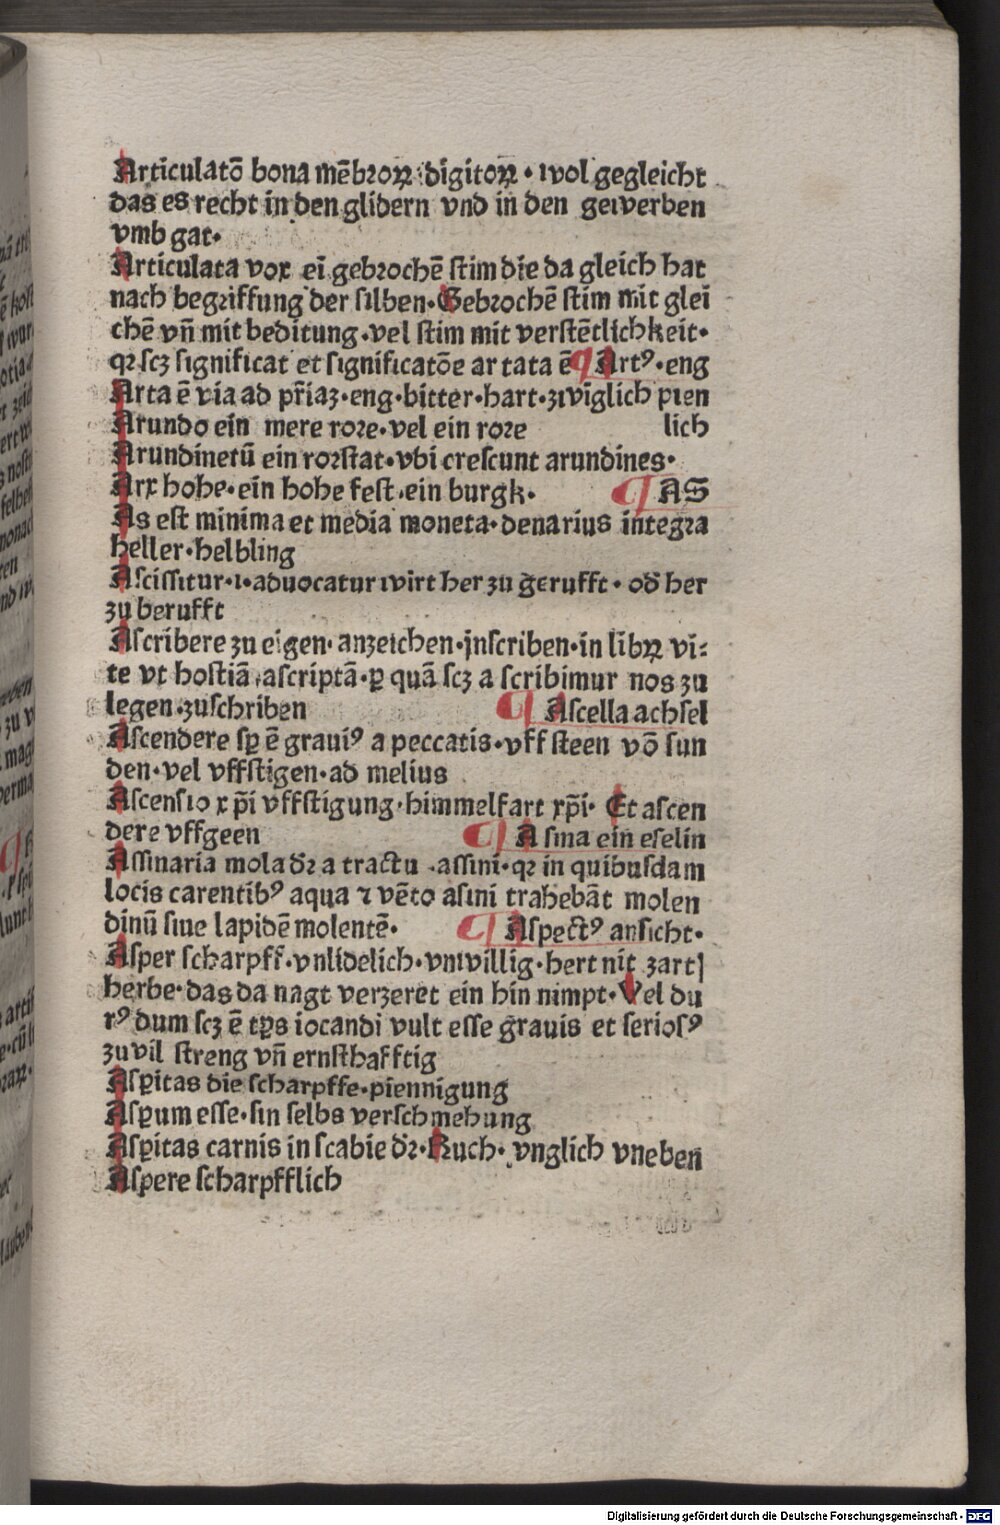 Articulatō bona mēbroꝝ digitoꝝ · wol gegleicht
das es recht in den glidern vnd in den gewerben
vmb gat·
Articulata vox ei gebrochē stim die da gleich hat
nach begriffung der silben· Gebrochē stim mit glei
chē vn̄ mit beditung· vel stim mit verstētlichkeit·
qꝛ scꝫ significat et significatōe ar tata ē ¶ Artꝰ· eng
Arta ē via ad pr̄iaꝫ· eng· bitter· hart· zwiglich pien
Arundo ein mere rore· vel ein rore lich
Arundinetū ein rorstat· vbi crescunt arundines·
Arx hohe· ein hohe fest· ein burgk· ¶ AS
As est minima et media moneta· denarius integra
heller· helbling
Ascissitur ·i· aduocatur wirt her zu gerufft· od̄ her
zu berufft
Ascribere zu eigen· anzeichen· jnscriben· in libꝝ vi:
te vt hostiā ascriptā· ꝑ quā scꝫ a scribimur nos zu
legen· zuschriben ¶ Ascella achsel
Ascendere sꝑ ē grauiꝰ a peccatis· vff steen vō sun
den· vel vffstigen· ad melius
Ascensio xp̄i vffstigung· himmelfart xp̄i· Et ascen
dere vffgeen ¶ Asina ein eselin
Assinaria mola dꝛ a tractu assini· qꝛ in quibusdam
locis carentibꝰ aqua ⁊ vēto asini trahebāt molen
dinū siue lapidē molentē· ¶ Aspectꝰ ansicht·
Asper scharpff· vnlidelich· vnwillig· hert nit zart]
herbe· das da nagt verzeret ein hin nimpt· Vel du
rꝰ dum scꝫ ē tꝑs iocandi vult esse grauis et seriosꝰ
zu vil streng vn̄ ernsthafftig
Asꝑitas die scharpffe· piennigung
Asꝑum esse· sin selbs verschmehung
Asꝑitas carnis in scabie dꝛ· Ruch· vnglich vneben
Aspere scharpfflich
Digitalisierung gefördert durch die Deutsche Forschungsgemeinschaft - DFG